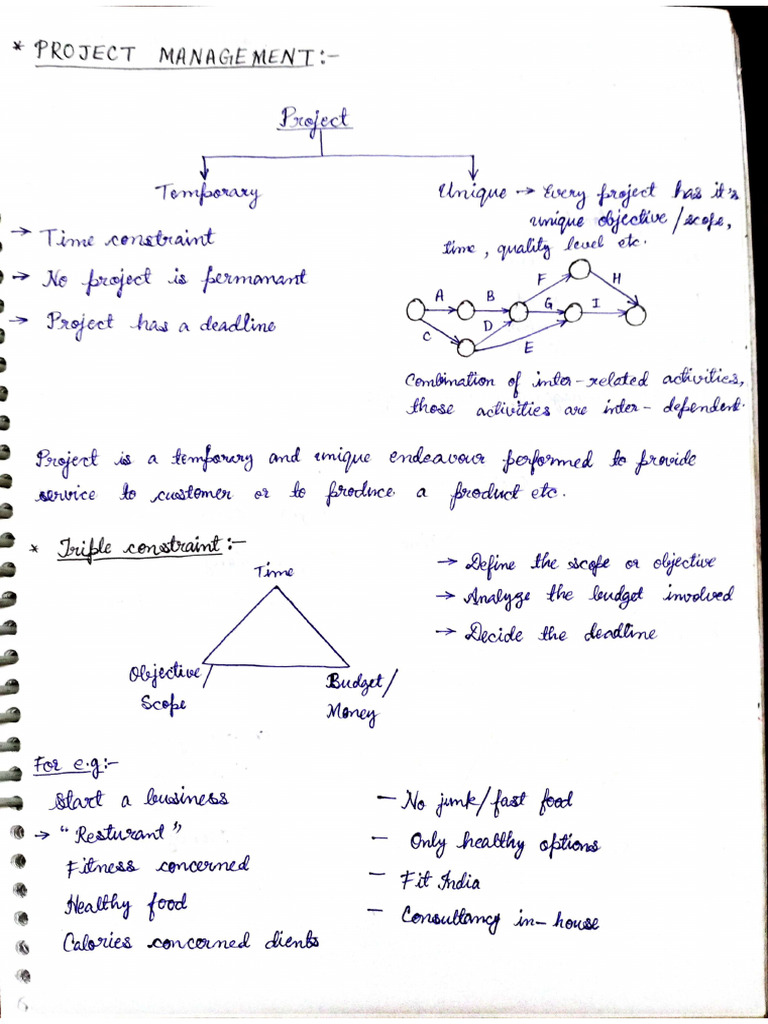 * PROJECT MANAGEMENT:-
Project
Temporary
→ Time constraint
→ No project is permanant
→ Project has a deadline
Unique → Every project has it's
unique objective/scope,
time, quality level etc.
A B C D E F G H I
Combination of inter-related activities,
those activities are inter-dependent.
Project is a temporary and unique endeavour performed to provide
service to customer or to produce a product etc.
* Triple constraint:-
Time
Objective/
Scope
Budget/
Money
→ Define the scope or objective
→ Analyze the budget involved
→ Decide the deadline
For e.g:-
Start a business
→ "Resturant"
Fitness concerned
Healthy food
Calories concerned dients
- No junk/fast food
- Only healthy options
- Fit India
- Consultancy in-house